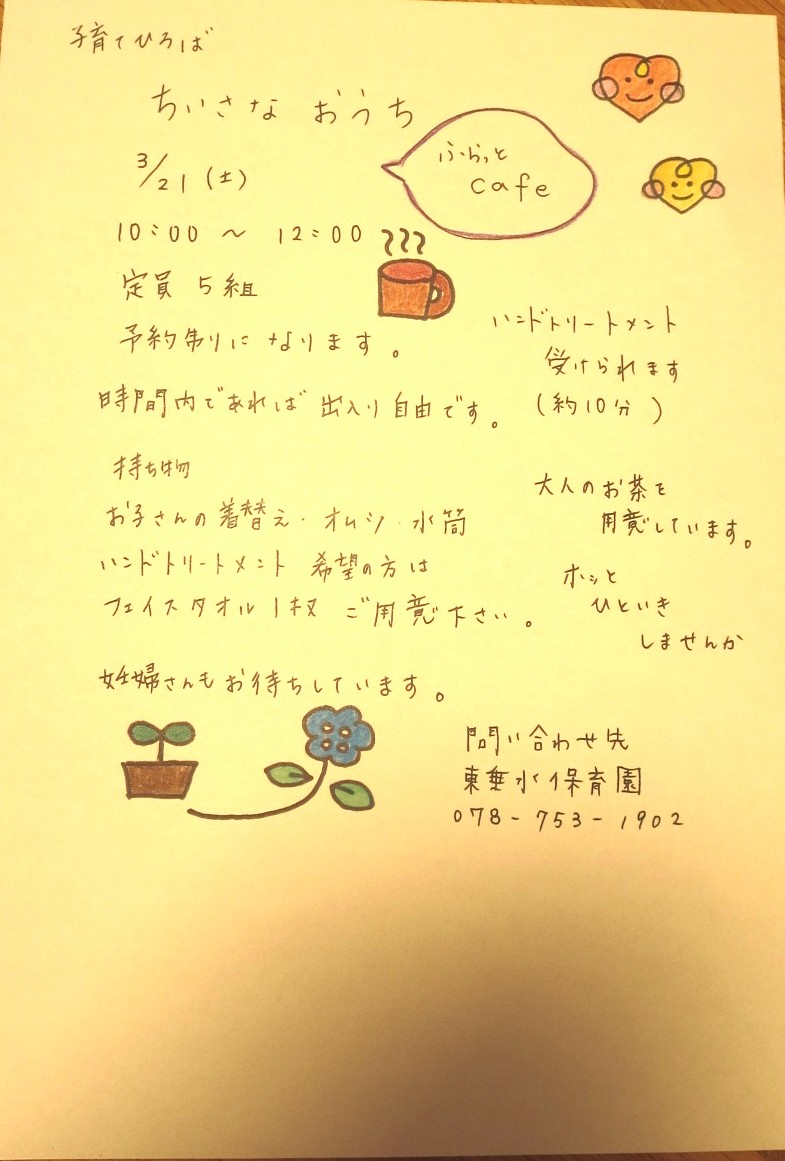 子育てひろば
ちいさな おうち
ふらっと
cafe
3/21 (土)
10:00 〜 12:00
定員 5組
予約制になります。
時間内であれば 出入り自由です。
ハンドトリートメント
受けられます
(約10分)
持ち物
お子さんの着替え・オムツ・水筒
ハンドトリートメント 希望の方は
フェイスタオル1枚 ご用意下さい。
大人のお茶を
用意しています。
ホッと
ひといき
しませんか
妊婦さんもお待ちしています。
問い合わせ先
東垂水保育園
078-753-1902